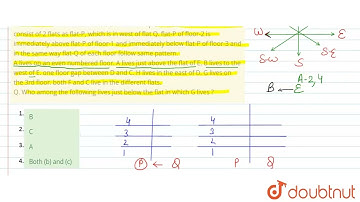 consist of 2 flats as flat-P, which is in west of flat Q. flat-P of floor-2 is
immediately above flat-P of floor-1 and immediately below flat-P of floor-3 and
in the same way flat-Q of each floor follow same pattern.
A lives on an even numbered floor. A lives just above the flat of E. B lives to the
west of E. one floor gap between D and C. H lives in the east of D. G lives on
the 3rd floor. both F and C live in the different flats.
Q. Who among the following lives just below the flat in which G lives?
W E
SW S SE
A-2,4
B ← E
1. B
2. C
3. A
4. Both (b) and (c)
4 4
3 3
2 2
1 1
P ← Q P Q
doubtnut